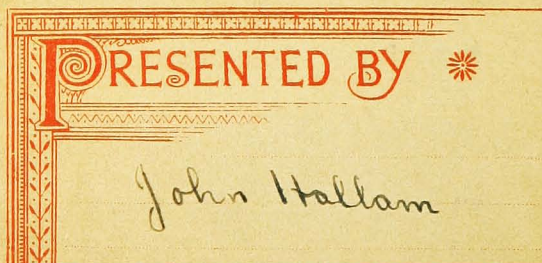 PRESENTED BY
John Hallam